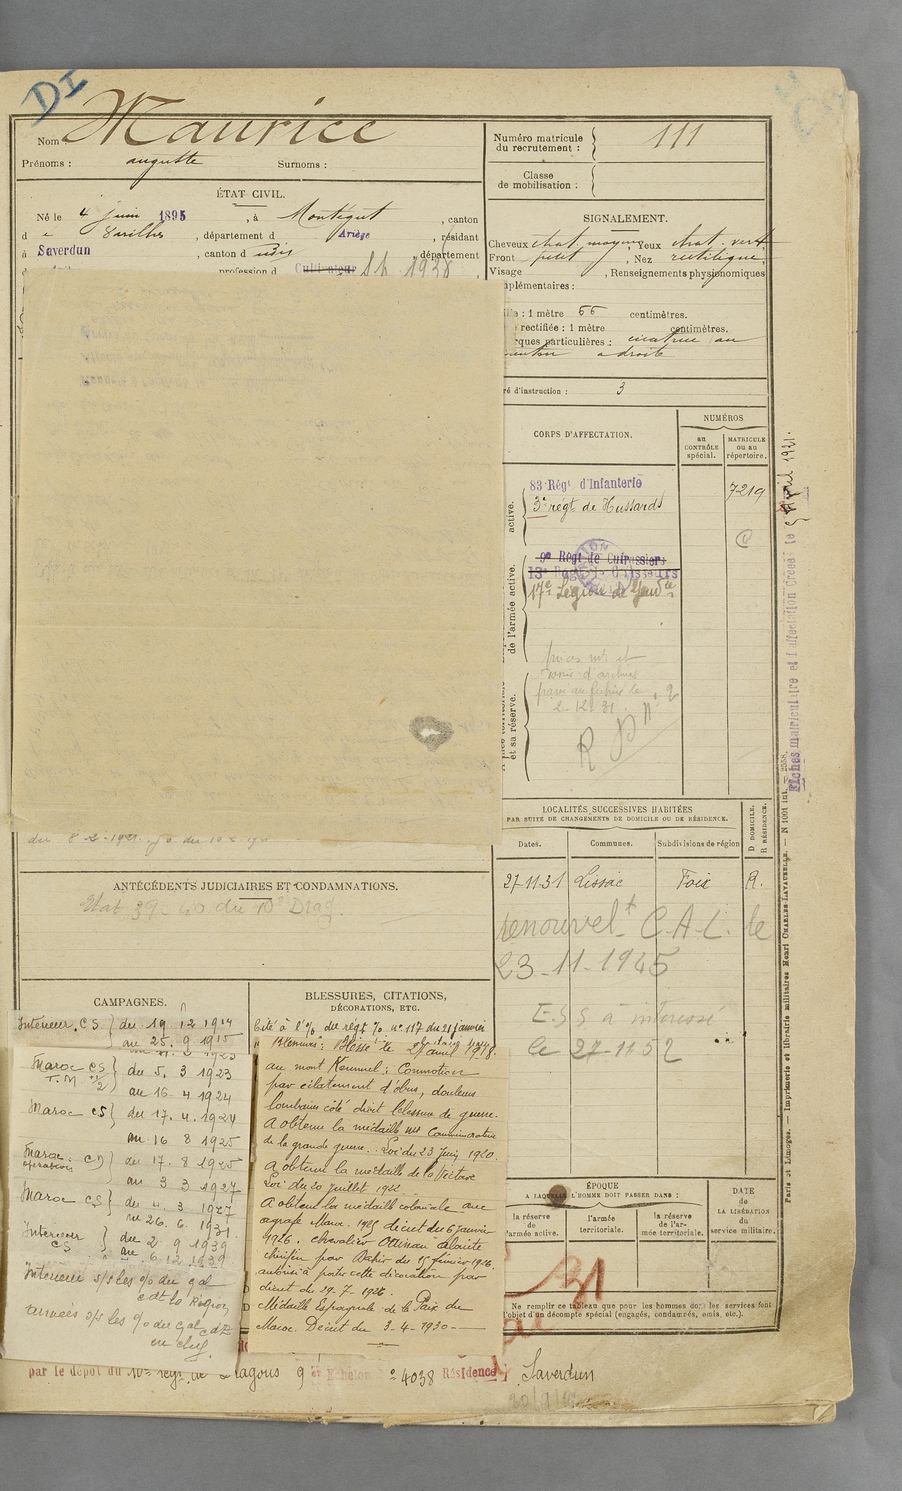 DI
Nom Maurice
Prénoms : auguste Surnoms :
ÉTAT CIVIL.
Né le 4 juin 1895, à Montégut, canton
d e Varilhes, département d Ariège, résidant
à Saverdun, canton d udis, département
profession d Cultivateur S.h. 1938
du 8-2-1921.
ANTÉCÉDENTS JUDICIAIRES ET CONDAMNATIONS.
Etat 39-40 du 10e Drag.
CAMPAGNES.
Intérieur. CS } du 19 12 1914
au 25. 9 1915
Maroc CS } du 5. 3 1923
T.M. 1/2 au 16-4 1924
Maroc CS } du 17. 4. 1924
au 16 8 1925
Maroc. CD } du 17. 8 1925
opérations au 3 3 1927
Maroc CS } du 4. 3 1927
au 26. 6. 1931.
Intérieur } du 2 9 1939
CS au 6.12.1939
Intérieur s/s les o/o du gal
cdt la Région
armées s/s les o/o du gal cdt
en chef.
BLESSURES, CITATIONS,
DÉCORATIONS, ETC.
Cité à l'o/o du régt % n° 117 du 21 janvier
Blessures : Blessé le 25 avril 1918.
au mont Kemmel : Commotion
par éclatement d'obus, douleurs
lombaires côté droit blessure de guerre.
A obtenu la médaille commémorative
de la grande guerre. Loi du 23 juin 1920.
A obtenu la médaille de la Victoire
Loi du 20 juillet 1922
A obtenu la médaille coloniale avec
agrafe Maroc. 1925 décret du 6 janvier
1926. Chevalier Ouissam Alaouite
chérifien par Dahir du 15 février 1926.
autorisé à porter cette décoration par
décret du 29. 7. 1926.
Médaille Espagnole de la Paix du
Maroc. Décret du 3-4-1930
par le dépôt du 10e régt. de Dragons 9 Echelon n° 4038 Résidence : Saverdun
Numéro matricule
du recrutement : } 111
Classe
de mobilisation : }
SIGNALEMENT.
Cheveux chat. moyen, Yeux chat. vert
Front petit, Nez rectiligne,
Visage , Renseignements physionomiques
complémentaires :
Taille : 1 mètre 66 centimètres.
rectifiée : 1 mètre centimètres.
Marques particulières : cicatrice au
menton a droite
Degré d'instruction : 3
CORPS D'AFFECTATION.
NUMÉROS
au
CONTRÔLE
spécial.
MATRICULE
ou au
répertoire.
active.
83e Régt d'Infanterie
3e régt de Hussards
7219
de l'armée active.
9e Régt de Cuirassiers
17e Légion de Gendie
et sa réserve.
2-12-31.
R P n° 2
LOCALITÉS SUCCESSIVES HABITÉES
PAR SUITE DE CHANGEMENTS DE DOMICILE OU DE RÉSIDENCE.
D DOMICILE.
R RÉSIDENCE.
Dates. Communes. Subdivisions de région
27-11-31 Lissac Foix R.
renouvelt C.A.L. le
23-11-1945
E.S.S à intéressé
le 27-11-52
ÉPOQUE
A LAQUELLE L'HOMME DOIT PASSER DANS :
la réserve
de
l'armée active.
l'armée
territoriale.
la réserve
de l'ar-
mée territoriale.
DATE
de
LA LIBÉRATION
du
service militaire.
31
Ne remplir ce tableau que pour les hommes dont les services font
l'objet d'un décompte spécial (engagés, condamnés, omis, etc.).
Fiches matriculaire et d'affectation Créées le 5 April 1921.
Paris et Limoges. — Imprimerie et librairie militaires Henri CHARLES-LAVAUZELLE. — N 1001 int.